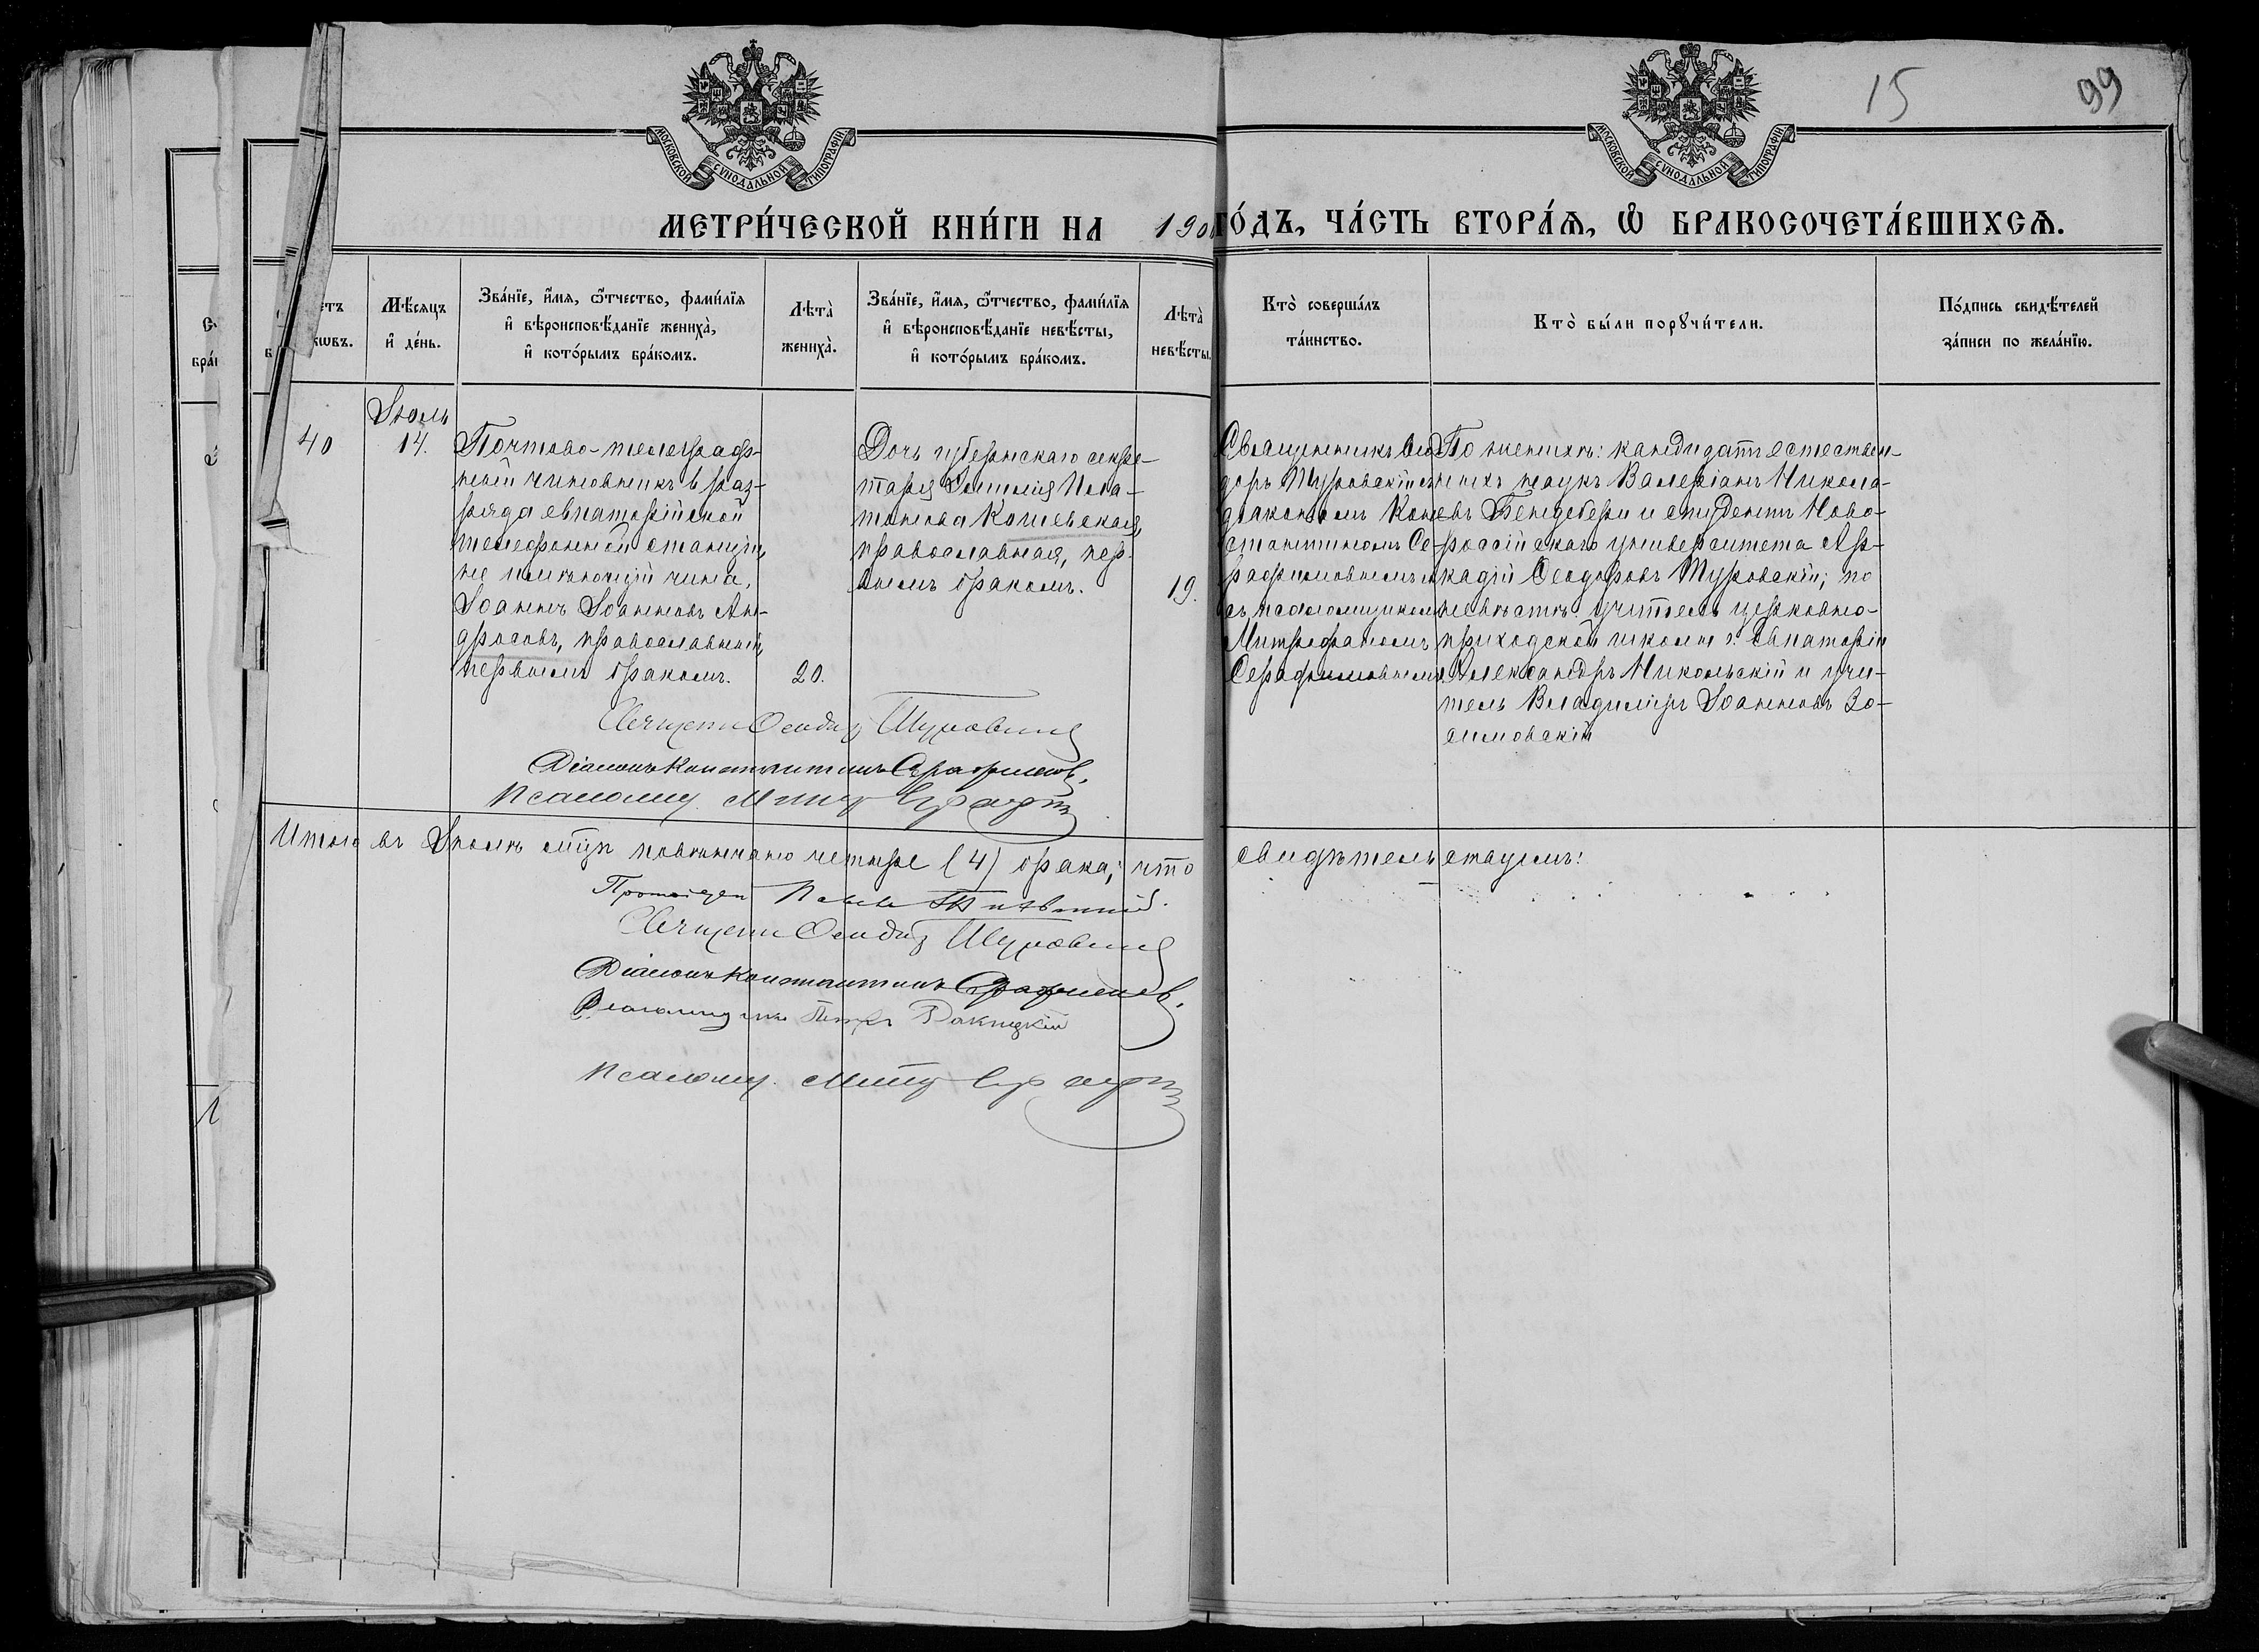 15
99
МОСКОВСКОЙ СѴНОДАЛЬНОЙ ТИПОГРАФІИ
МОСКОВСКОЙ СѴНОДАЛЬНОЙ ТИПОГРАФІИ
МЕТРИ́ЧЕСКОЙ КНИ́ГИ НА 190
ГО́ДЪ, ЧА́СТЬ ВТОРА́Ѧ, Ѡ҆ БРАКОСОЧЕТА́ВШИХСѦ.
Мѣ́сяцъ
и҆ де́нь.
Зва́нїе, и҆́мя, ѻ҆́тчество, фами́лїя
и҆ вѣроисповѣ́данїе жениха̀,
и҆ кото́рымъ бра́комъ.
Лѣта̀
жениха̀.
Зва́нїе, и҆́мя, ѻ҆́тчество, фами́лїя
и҆ вѣроисповѣ́данїе невѣ́сты,
и҆ кото́рымъ бра́комъ.
Лѣта̀
невѣ́сты.
Кто̀ соверша́лъ
та́инство.
Кто̀ бы́ли порꙋчи́тели.
По́дпись свидѣ́телей
за́писи по жела́нїю.
40
Іюль
14.
Почтово-телеграф-
ный чиновникъ 6 раз-
ряда евпаторійской
телефонной станціи,
не имѣющій чина,
Іоаннъ Іоанновъ Ан-
дросовъ, православный,
первымъ бракомъ.
20.
Дочь губернскаго секре-
таря Пла-
тонова Кошевская,
православная, пер-
вымъ бракомъ.
19.
Священникъ Ѳео-
доръ Туровскій съ
діакономъ Кон-
стантиномъ Се-
рафимовымъ и
съ псаломщикомъ
Митрофаномъ
Серафимовымъ.
По женихѣ: кандидатъ естествен-
ныхъ наукъ Валеріанъ Никола-
евъ Бендебери и студентъ Ново-
россійскаго университета Ар-
кадій Ѳеодоровъ Туровскій; по
невѣстѣ: учитель церковно-
приходской школы г. Евпаторіи
Александръ Никольскій и учи-
тель Владиміръ Іоанновъ Зо-
симовскій
Священ Ѳеодоръ Туровскій
Діаконъ Константинъ Серафимовъ.
Псаломщ. Митр
Итого въ Іюлѣ м͠цѣ повѣнчано четыре (4) брака; что
свидѣтельствуемъ:
Протоіерей Павелъ
Священ Ѳеодоръ Туровскій
Діаконъ Константинъ Серафимовъ.
Псаломщикъ Петръ Ракицкій
Псаломщ. Митр